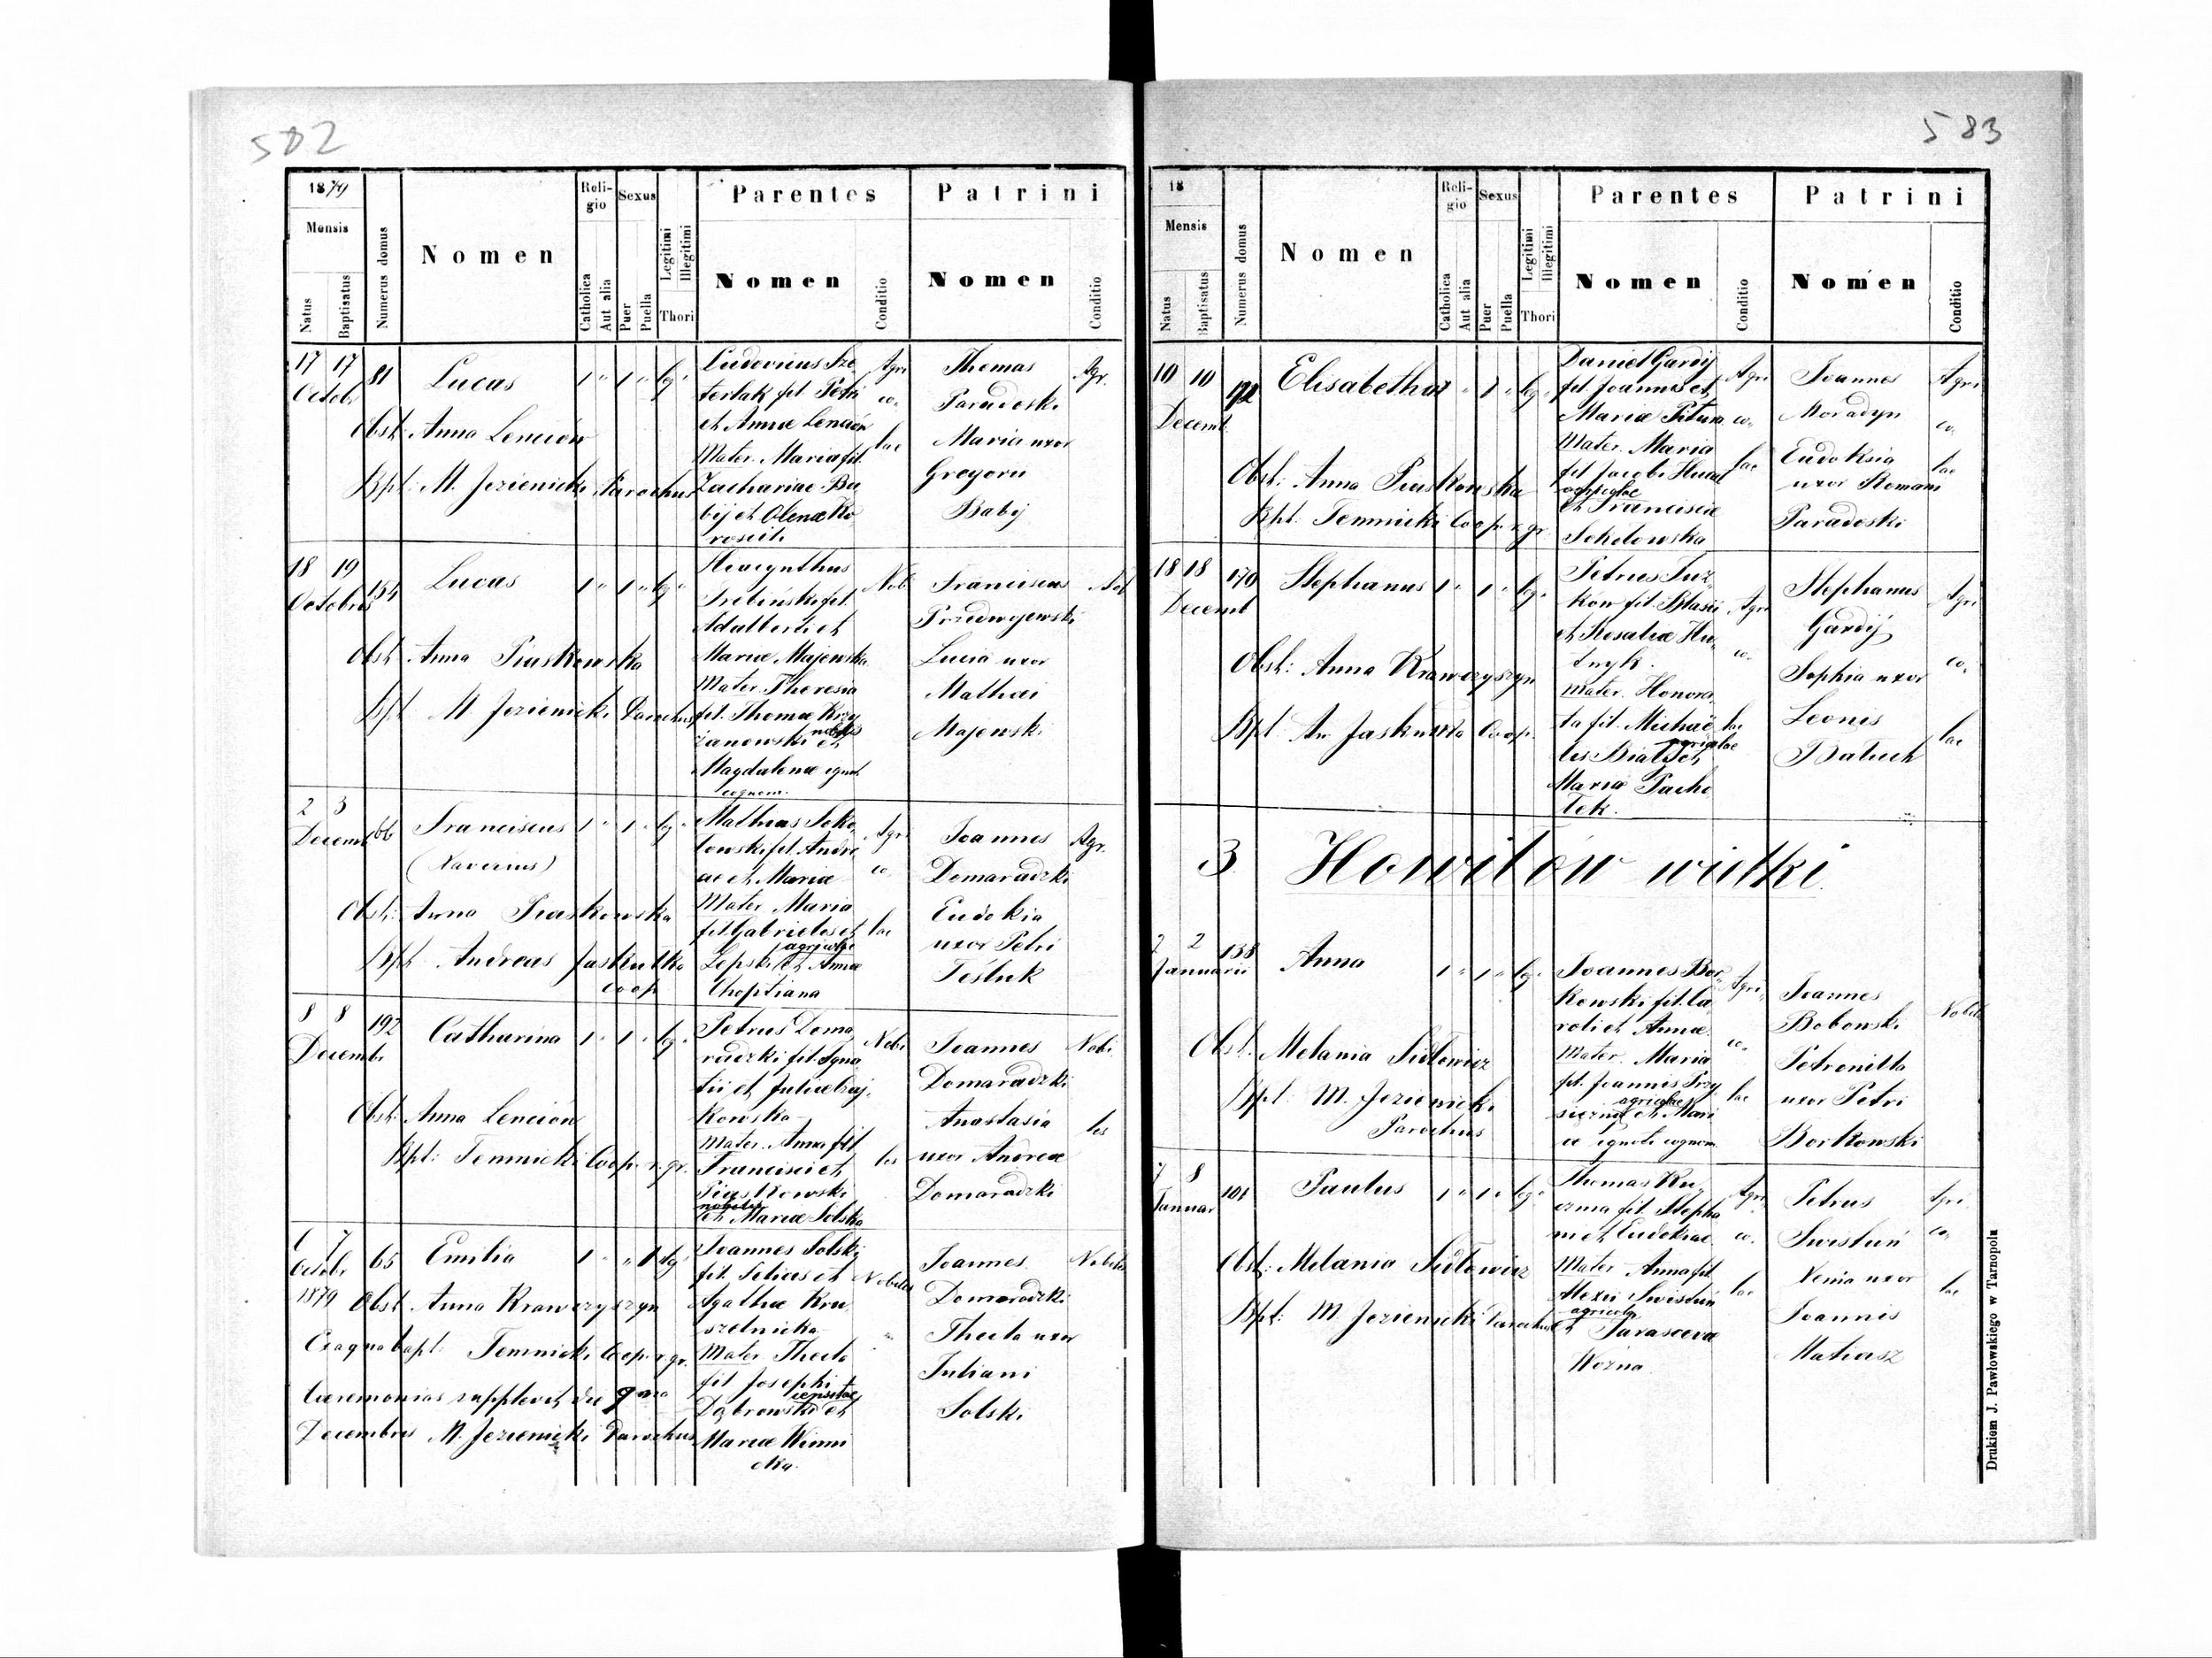 582
1879
Mensis
Natus
Baptisatus
Numerus domus
Nomen
Religio
Catholica
Aut alia
Sexus
Puer
Puella
Legitimi
Illegitimi
Thori
Parentes
Nomen
Conditio
Patrini
Nomen
Conditio
17 17 81 Lucas 1 " 1 " leg "
Octobr
Obst: Anna Lenciów
Bpt: M. Jezienicki Parochus
Ludovicus Sze
terlak fil. Petri
et Annae Lenciów
Mater. Maria fil.
Zachariae Ba
bij et Olenae Ko
roseili
Agri
co
lae
Thomas
Paradoski
Maria uxor
Gregorii
Babij
Agr.
18 19 154 Lucas 1 " 1 " leg "
Octobris
Obst Anna Piaskowska
Bpt M Jezienicki Parochus
Hiacynthus
fil.
Adalberti et
Mariae Majewska
Mater. Theresia
fil. Thomae Krzy
żanowski nobiles et
Magdalenae ignot
cognom.
Nob
Franciscus
Lucia uxor
Mathaei
Majewski
Nob
2 3 66 Franciscus 1 " 1 " leg "
Decemb
(Xaverius)
Obst: Anna Piaskowska
Bpt Andreas Jaskulka
Coop
Mathias Soko
lowski fil. Andre
ae et Mariae
Mater Maria
fil. Gabrieles et
Lepski agricolae et Annae
Choptiana
Agri
co
lae
Joannes
Domaradzki
Eudokia
uxor Petri
Teśluk
Agr.
8 8 192 Catharina 1 " 1 " leg "
Decembr
Obst: Anna Lenciów
Bpt: Temnicki Coop. r. gr.
Petrus Doma
radzki fil. Igna
tii et Juliae Czaj
kowska
Mater. Anna fil
Francisci et
Piaskowski
nobiles
et Mariae Solska
Nobi
les
Joannes
Domaradzki
Anastasia
uxor Andreae
Domaradzki
Nobi
les
6 7 65 Emilia 1 " " 1 leg
Octobr
1879 Obst Anna Krawczyszyn
Ex aqua bapt: Temnicki Coop. r. gr.
Caeremonias supplevit die 9na
Decembris M. Jezienicki Parochus
Joannes Solski
fil. Felicis et
Agathae Kru
szelnicka
Mater Thecla
fil Josephi
Dąbrowski et
Mariae Winni
cka.
Nobiles
Joannes
Domaradzki
Thecla uxor
Juliani
Solski
Nobiles
583
18
Mensis
Natus
Baptisatus
Numerus domus
Nomen
Religio
Catholica
Aut alia
Sexus
Puer
Puella
Legitimi
Illegitimi
Thori
Parentes
Nomen
Conditio
Patrini
Nomen
Conditio
10 10 192 Elisabetha 1 " 1 " leg "
Decemb
Obst: Anna Piaskowska
Bpt: Temnicki Coop. r. gr.
Daniel Gardij
fil. Joannes et
Mariae Pitura
Mater. Maria
fil Jacobi
agricolae
et Franciscae
Sokolowska
Agri
co
lae
Joannes
Moradyn
Eudoksia
uxor Romani
Paradoski
Agri
co
lae
18 18 170 Stephanus 1 " 1 " leg "
Decemb
Obst: Anna Krawczyszyn
Bpt An. Jaskulka Coop.
Petrus Tuz
kow fil. Blasii
et Rosaliae Hu
tnyk.
Mater. Honora
ta fil. Michae
lis agricolae et
Maria Pacho
lek.
Agri
co
lae
Stephanus
Gardij
Sophia uxor
Leonis
Baluch
Agri
co
lae
3. Howiłów wielki.
2 2 138 Anna 1 " 1 " leg "
Januarii
Obst. Melania Sidlowicz
Bpt: M. Jezienicki
Parochus
Joannes Bor
kowski fil. Ca
roli et Annae
Mater. Maria
fil. Joannis Przy
agricolae et Mari
ae ignoti cognom
Agri
co
lae
Joannes
Bobowski
Petronilla
uxor Petri
Borkowski
Nobiles
7 8 101 Paulus 1 " 1 " leg "
Januar
Obst: Melania Sidlowicz
Bpt: M Jezienicki Parochus
Thomas Ku
czma fil. Stepha
ni et Eudokiae
Mater Anna fil
Alexii Swistuń
agricola
et Parascevae
Woźna
Agri
co
lae
Petrus
Swistuń
Xenia uxor
Joannis
Matiasz
Agri
co
lae
Drukiem J. Pawłowskiego w Tarnopolu